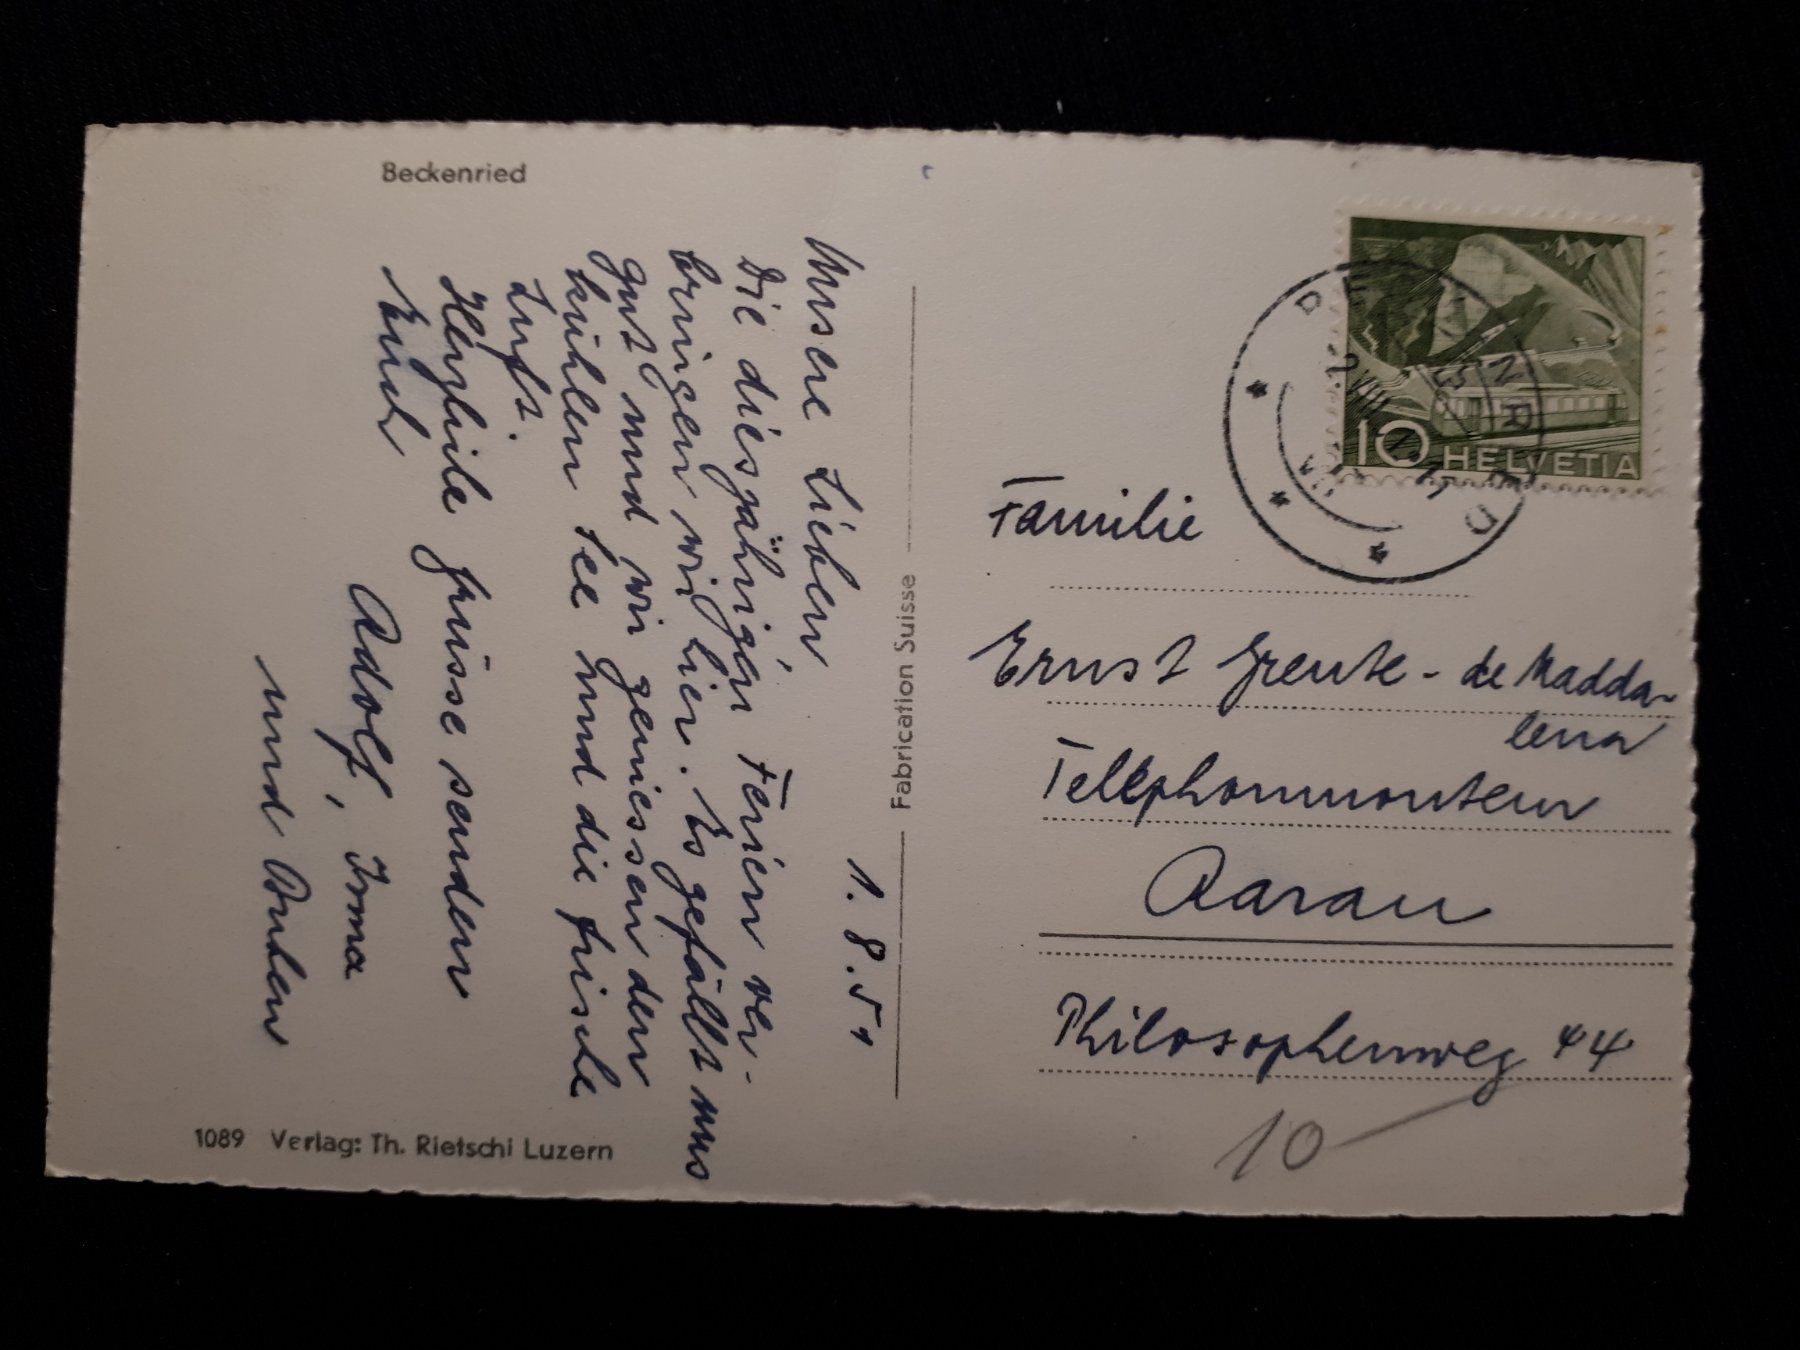 Beckenried
1.8.51
Unsere Lieben
Die diesjährigen Ferien ver-
bringen wir hier. Es gefällt uns
gut und wir geniessen den
kühlen See und die frische
Luft.
Herzliche Grüsse senden
Euch
Adolf, Irma
und
1089 Verlag: Th. Rietschi Luzern
Fabrication Suisse
10 HELVETIA
Familie
Ernst Greute - de Madda-
lena
Telephonmonteur
Aarau
Philosophenweg 44
10